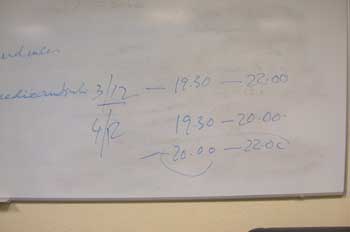 3/12 — 19.30 — 22.00
4/12 19.30 — 20.00
— 20.00 — 22.00